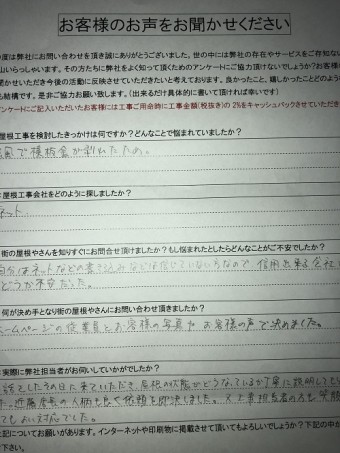 お客様のお声をお聞かせください
度は弊社にお問い合わせを頂き誠にありがとうございました。世の中には弊社の存在やサービスをご存知ない
山いらっしゃいます。その方たちに弊社をよく知って頂くためのアンケートにご協力頂けないでしょうか?お客様
聞かせいただき今後の活動に反映させていただきたいと考えております。良かったこと、嬉しかったことどのよう
も結構です。是非ご協力お願い致します。(出来るだけ具体的に書いて頂ければ幸いです)
アンケートにご記入いただいたお客様には工事ご用命時に工事金額(税抜き)の 2%をキャッシュバックさせていただき
屋根工事を検討したきっかけは何ですか?どんなことで悩まれていましたか?
風で棟板金が剥れたため。
屋根工事会社をどのように探しましたか?
ネット.
街の屋根やさんを知りすぐにお問合せ頂けましたか?もし悩まれたとしたらどんなことがご不安でしたか?
自分はネットなどの書き込みなどは信じていないたちなので、信用出来る会社
どうか不安だった。
何が決め手となり街の屋根やさんにお問い合わせ頂きましたか?
ホームページの従業員とお客様の写真やお客様の声で決めました。
実際に弊社担当者がお伺いしていかがでしたか?
話をしたその日に来ていただき、屋根の状態がどうなっているか丁寧に説明して
近藤店長の人柄も良く依頼を即決しました。又工事担当者の方も
ても良い対応でした。
上記についてお願いがあります。インターネットや印刷物に掲載させて頂いてもよろしいでしょうか?下記の中か
下さい。